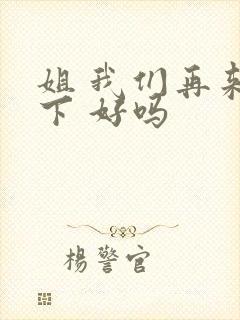 姐我们再来
下好吗
楊警官